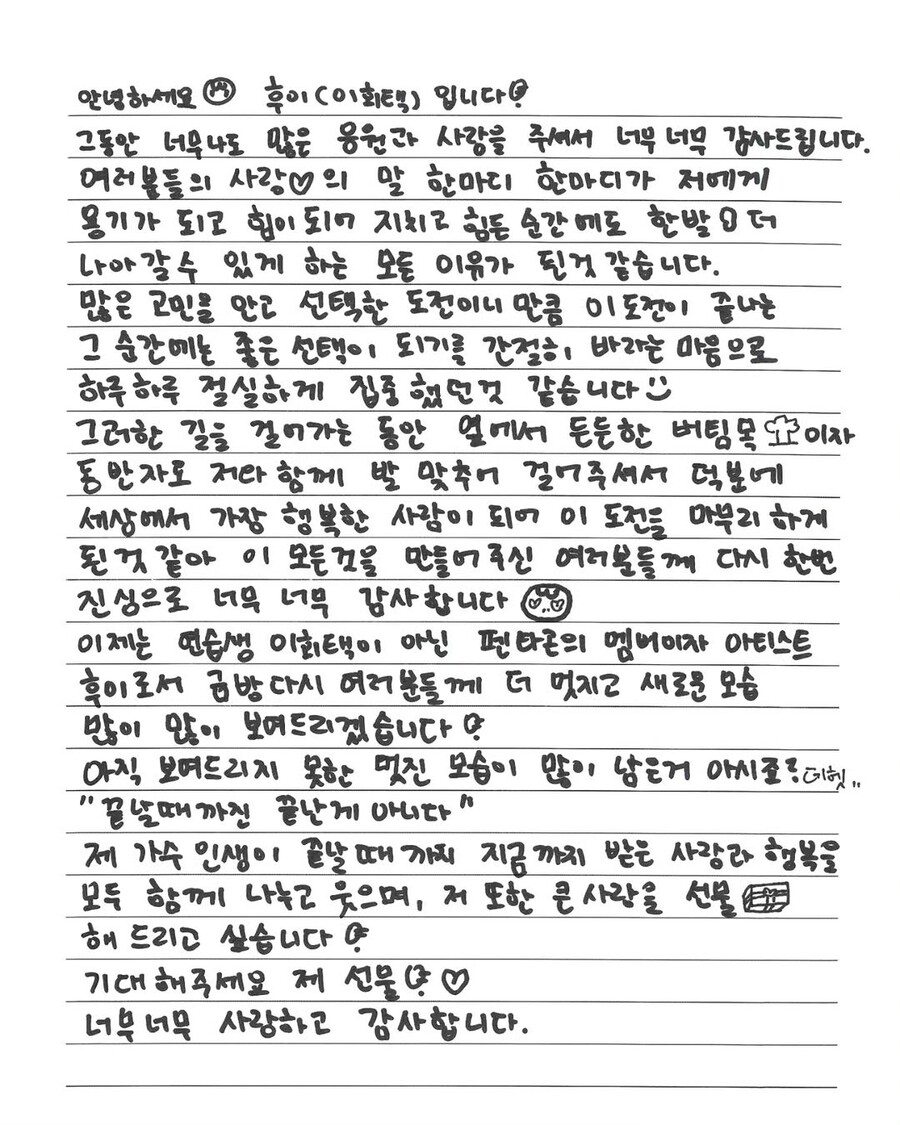 안녕하세요 후이(이회택) 입니다!
그동안 너무나도 많은 응원과 사랑을 주셔서 너무 너무 감사드립니다.
여러분들의 사랑♡의 말 한마디 한마디가 저에게
용기가 되고 힘이 되어 지치고 힘든 순간에도 한발 더
나아갈 수 있게 하는 모든 이유가 된것 같습니다.
많은 고민을 안고 선택한 도전이니 만큼 이 도전이 끝나는
그 순간에는 좋은 선택이 되기를 간절히 바라는 마음으로
하루하루 절실하게 집중했던것 같습니다
그러한 길을 걸어가는 동안 옆에서 든든한 버팀목 이자
동반자로 저와 함께 발 맞추어 걸어주셔서 덕분에
세상에서 가장 행복한 사람이 되어 이 도전을 마무리 하게
된 것 같아 이 모든것을 만들어 주신 여러분들께 다시 한번
진심으로 너무 너무 감사합니다
이제는 연습생 이회택이 아닌 펜타곤의 멤버이자 아티스트
후이로서 금방 다시 여러분들께 더 멋지고 새로운 모습
많이 많이 보여드리겠습니다!
아직 보여드리지 못한 멋진 모습이 많이 남은거 아시죠? 더헷..
"끝날때까진 끝난게 아니다"
제 가수 인생이 끝날 때 까지 지금까지 받은 사랑과 행복을
모두 함께 나누고 웃으며, 저 또한 큰 사랑을 선물
해 드리고 싶습니다!
기대해주세요 제 선물! ♡
너무너무 사랑하고 감사합니다.